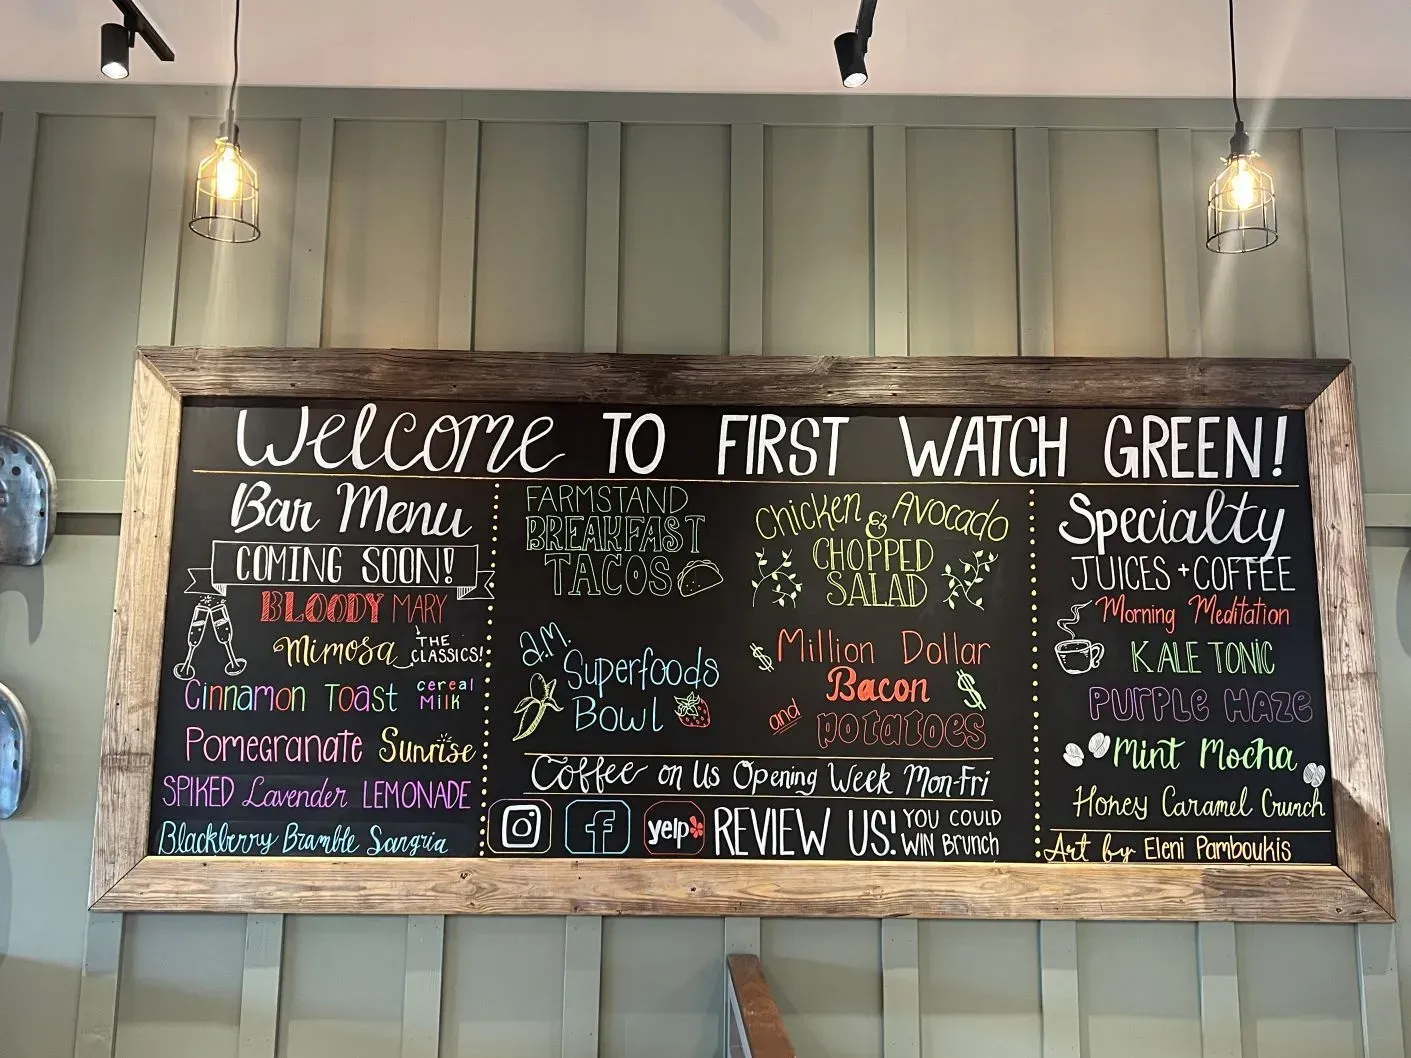 Welcome TO FIRST WATCH GREEN!
Bar Menu
COMING SOON!
BLOODY MARY
Mimosa THE
CLASSICS!
Cinnamon Toast cereal
Milk
Pomegranate Sunrise
SPIKED Lavender LEMONADE
Blackberry Bramble Sangria
FARMSTAND
BREAKFAST
TACOS
Chicken & Avocado
CHOPPED
SALAD
a.m.
Superfoods
Bowl
$ Million Dollar
Bacon $
and potatoes
Coffee on Us Opening Week Mon-Fri
yelp REVIEW US! YOU COULD
WIN Brunch
Specialty
JUICES + COFFEE
Morning Meditation
KALE TONIC
PURPLE HAZE
Mint Mocha
Honey Caramel Crunch
Art by Eleni Pamboukis